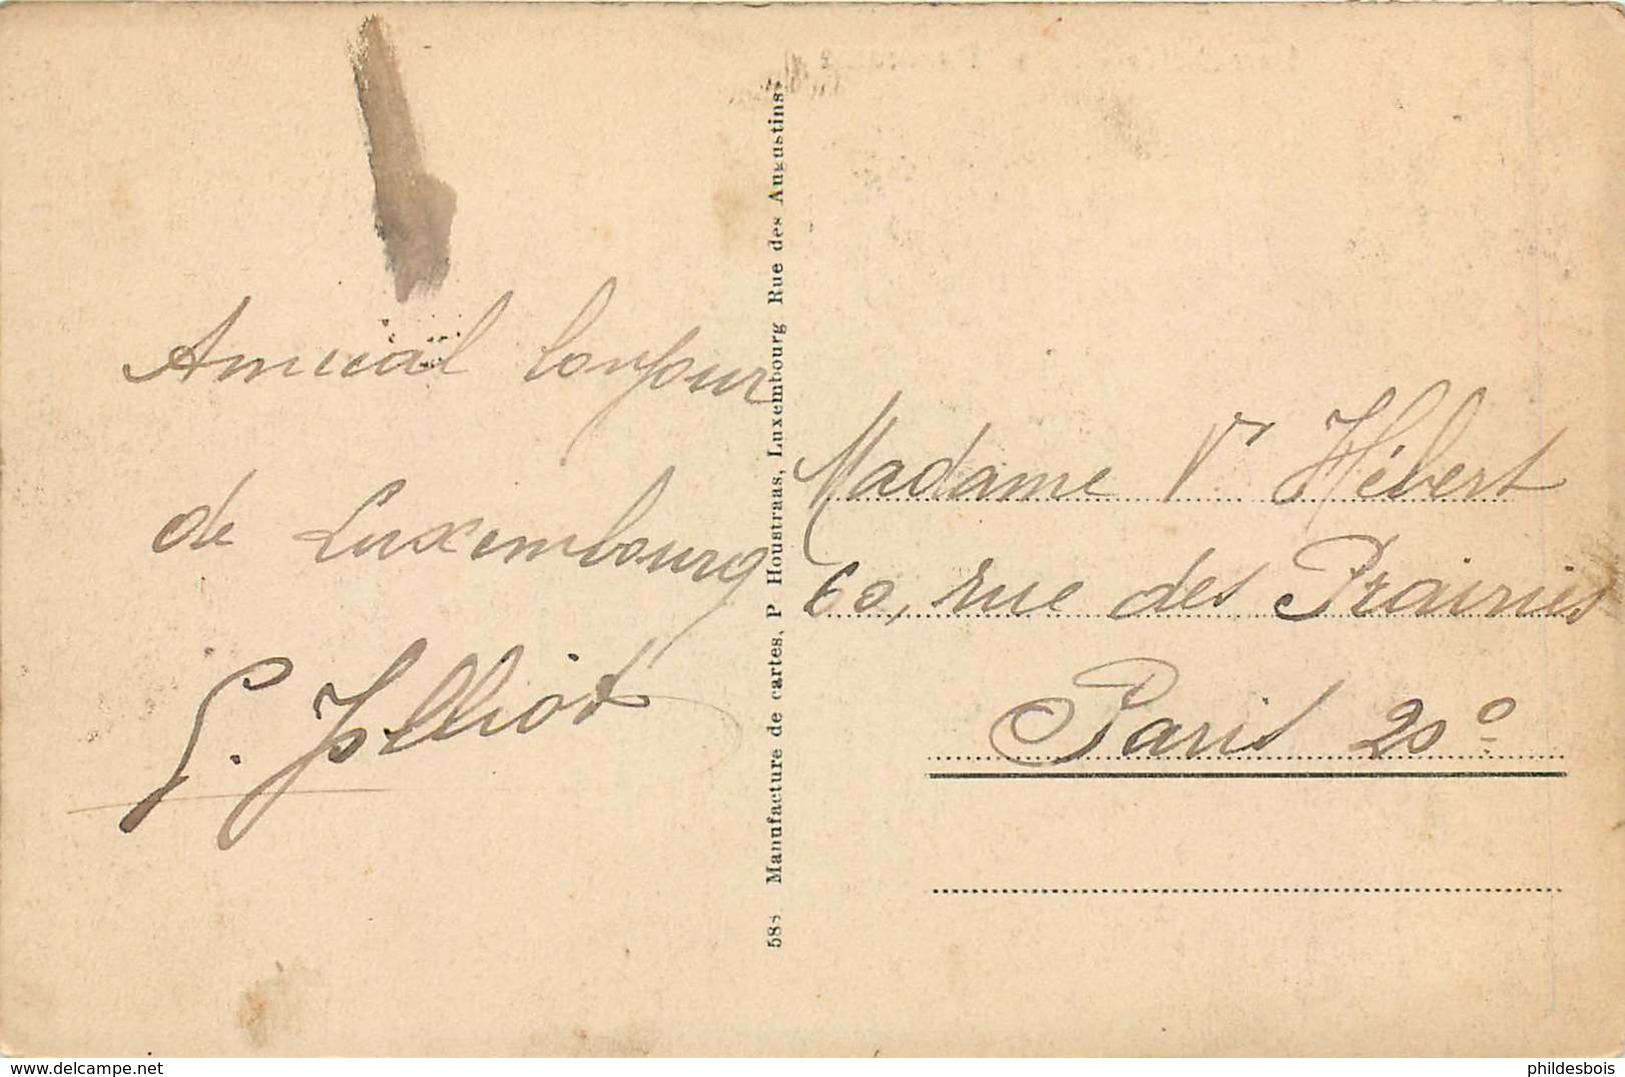 Amical bonjour
de Luxembourg
G. Jolliot
Madame Vve Hébert
60, rue des Prairies
Paris 20e
588 Manufacture de cartes, P Houstraas, Luxembourg Rue des Augustins
www.delcampe.net
phildesbois